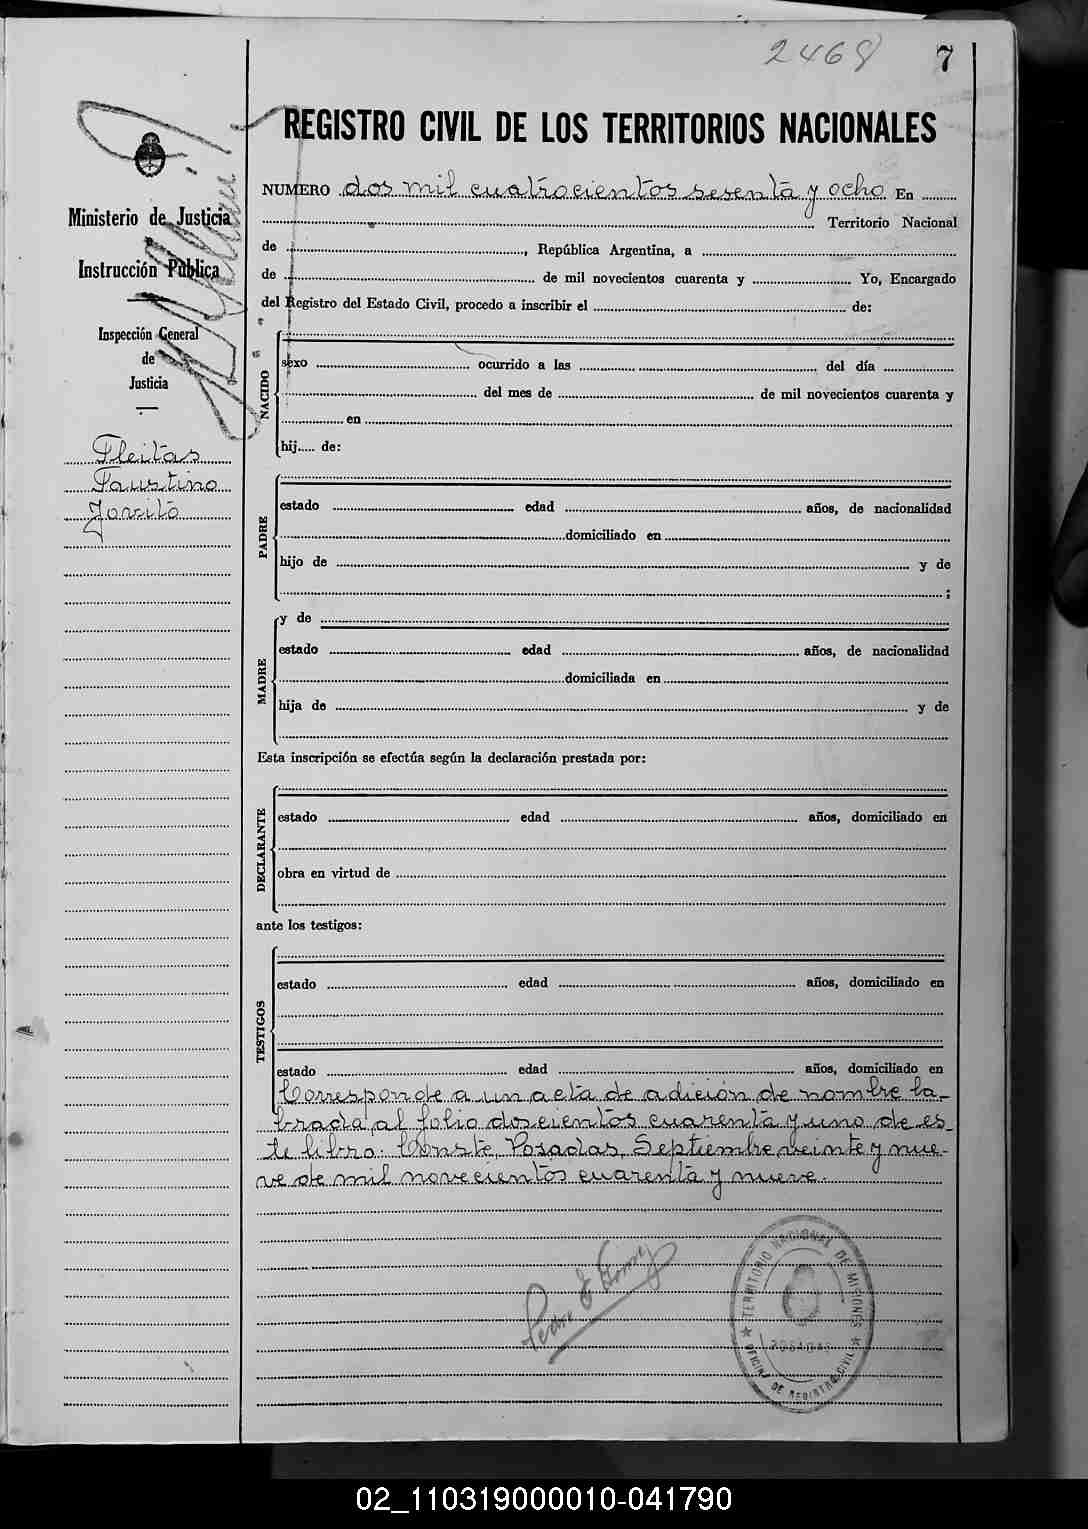 2468
7
REGISTRO CIVIL DE LOS TERRITORIOS NACIONALES
Ministerio de Justicia
e
Instrucción Pública
Inspección General
de
Justicia
Fleitas
Faustino
NUMERO dos mil cuatrocientos sesenta y ocho En
Territorio Nacional
de , República Argentina, a
de de mil novecientos cuarenta y Yo, Encargado
del Registro del Estado Civil, procedo a inscribir el de:
NACIDO
sexo ocurrido a las del día
del mes de de mil novecientos cuarenta y
en
hij..... de:
PADRE
estado edad años, de nacionalidad
domiciliado en
hijo de y de
;
y de
MADRE
estado edad años, de nacionalidad
domiciliada en
hija de y de
Esta inscripción se efectúa según la declaración prestada por:
DECLARANTE
estado edad años, domiciliado en
obra en virtud de
ante los testigos:
TESTIGOS
estado edad años, domiciliado en
estado edad años, domiciliado en
Corresponde a un acta de adición de nombre la-
brada al folio doscientos cuarenta y uno de es-
te libro. Conste, Posadas, Septiembre veinte y nue-
ve de mil novecientos cuarenta y nueve.
Pedro
TERRITORIO NACIONAL DE MISIONES
POSADAS
OFICINA DE REGISTRO CIVIL
02_110319000010-041790